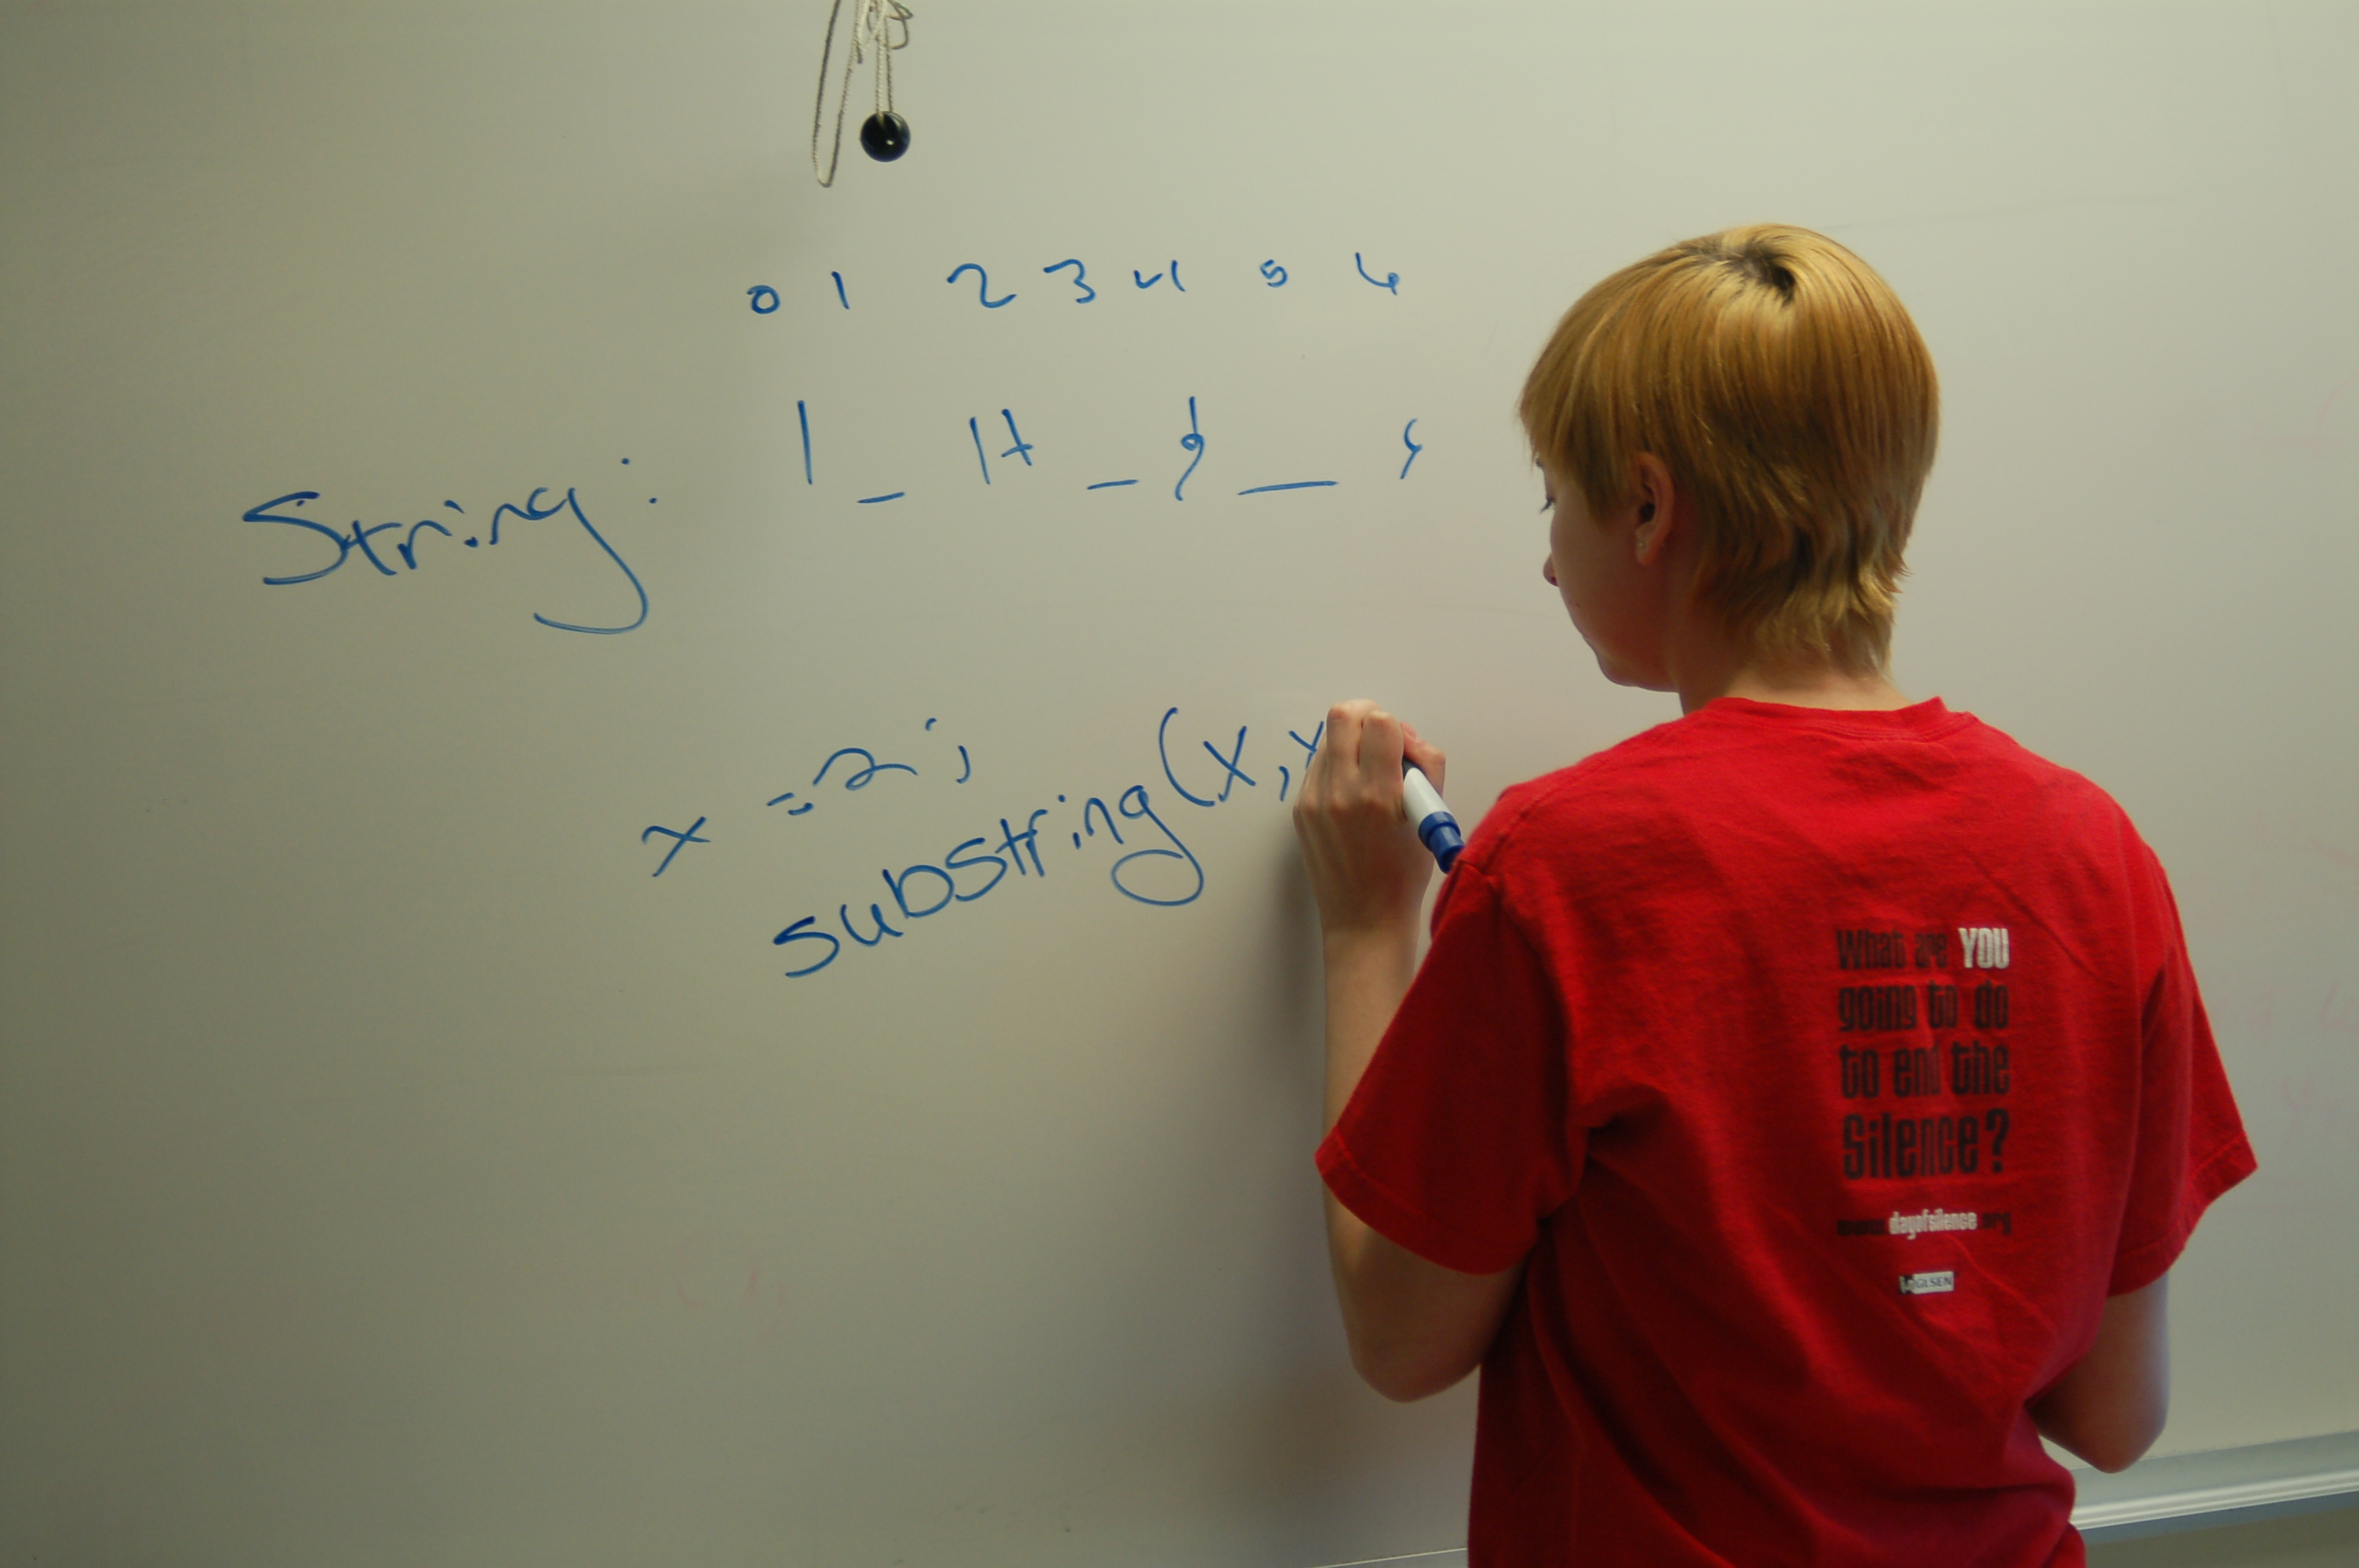 0 1 2 3 4 5 6
String: | _ 17 _ 9 __
x = 2;
substring(x,x
What are YOU
going to do
to end the
Silence?
www.dayofsilence.org
GLSEN